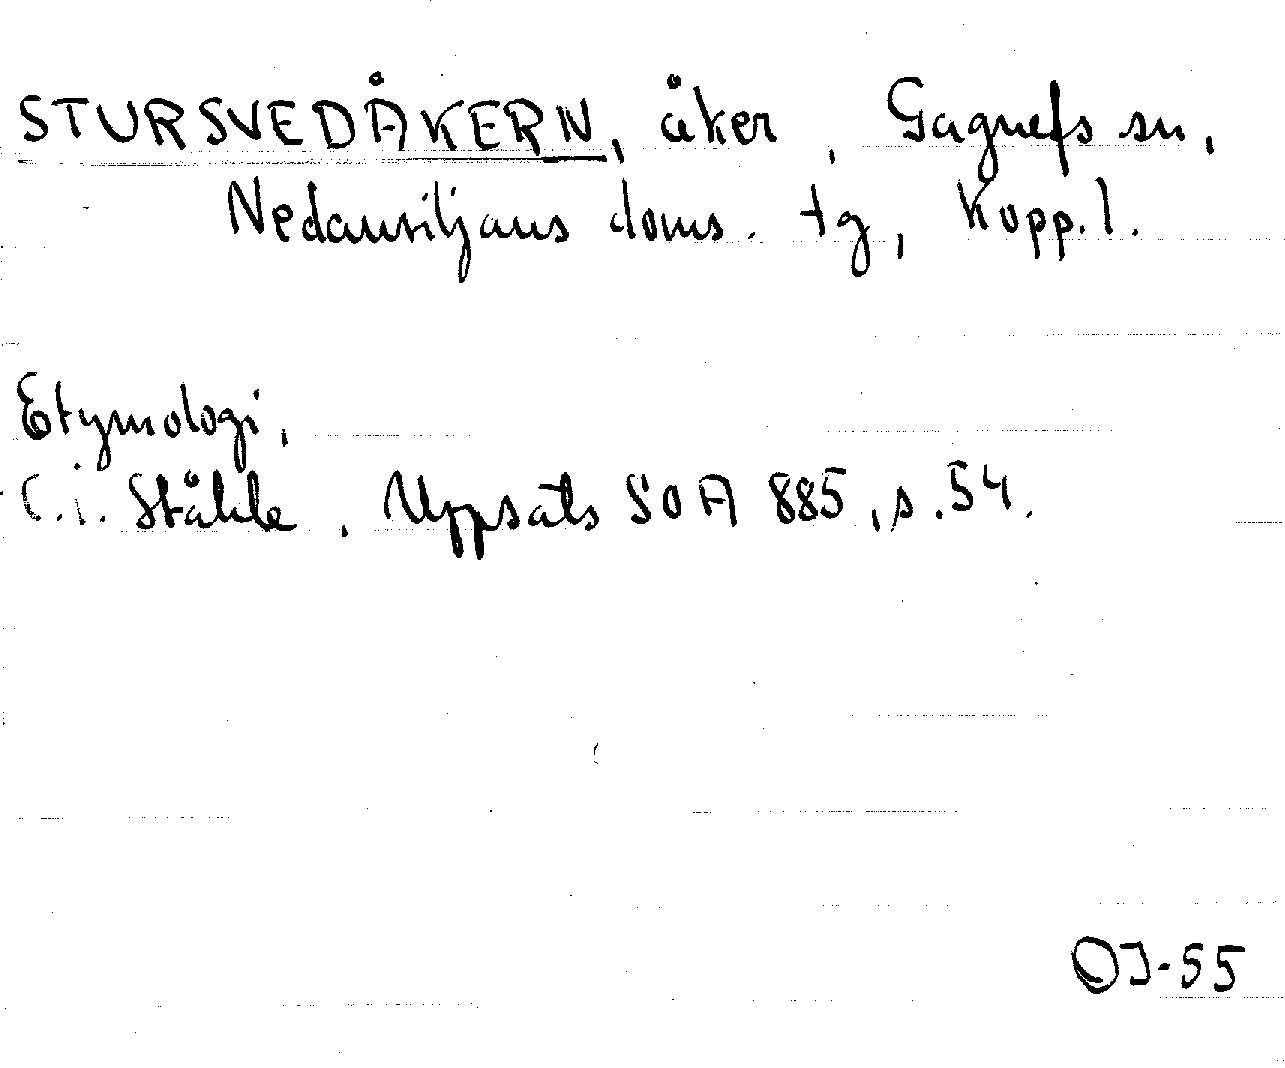 STURSVEDÅKERN, åker, Gagnefs sn,
Nedansiljans doms. tg, Kopp. l.
Etymologi,
C.i. Ståhle, Uppsats SOA 885, s. 54.
OJ-55